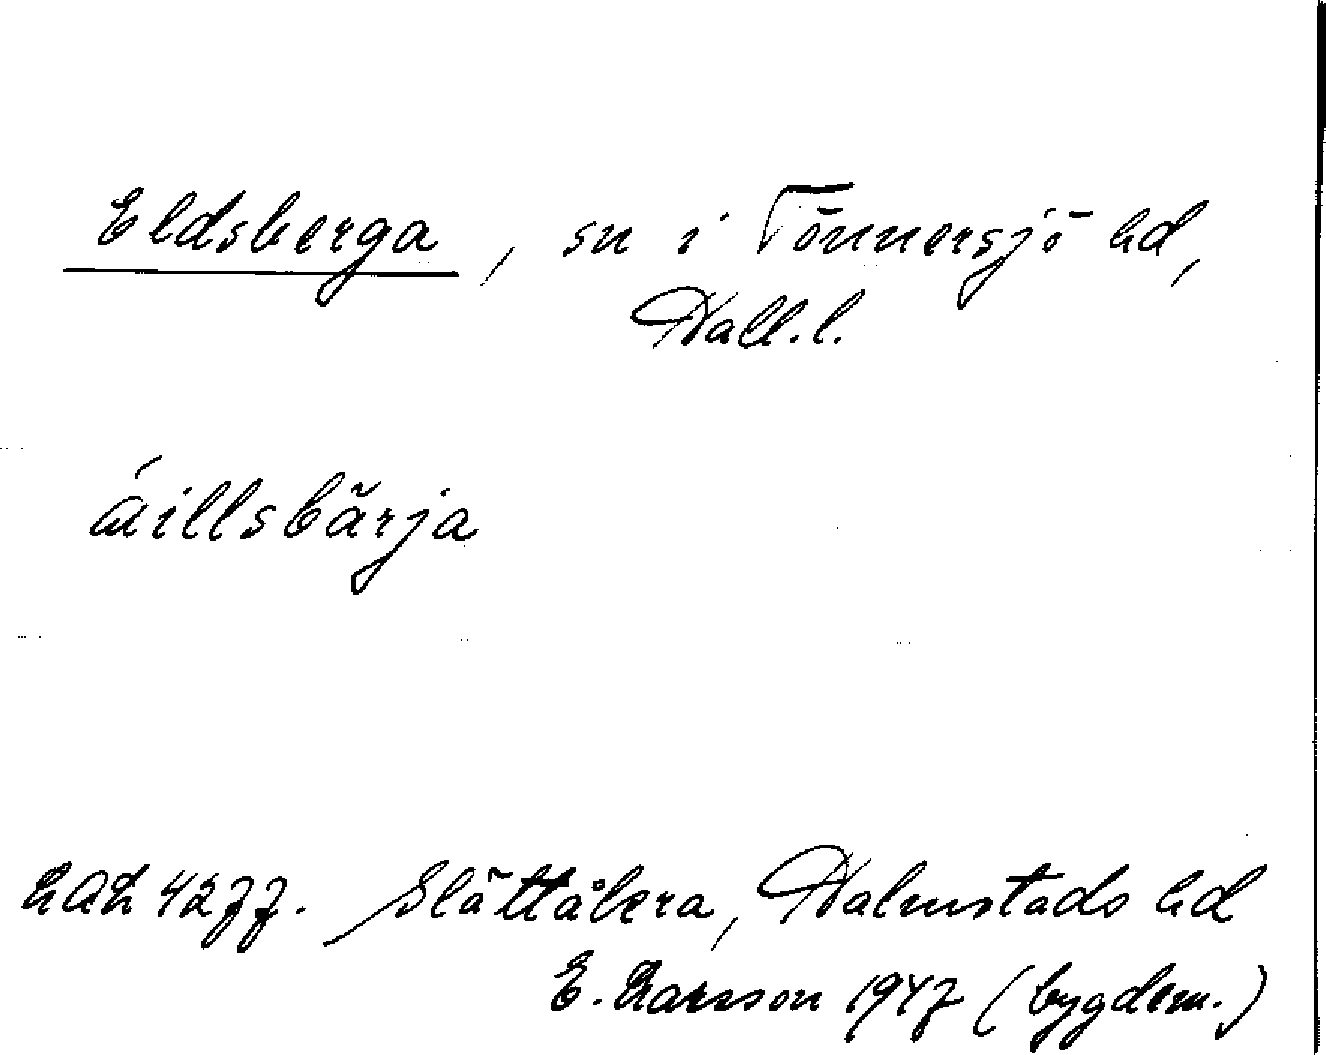 Eldsberga, sn i Tönnersjö hd,
Hall.l.
áillsbärja
LAL 4277. Slättåkra, Halmstads hd
E. Larsson 1947 (bygdem.)